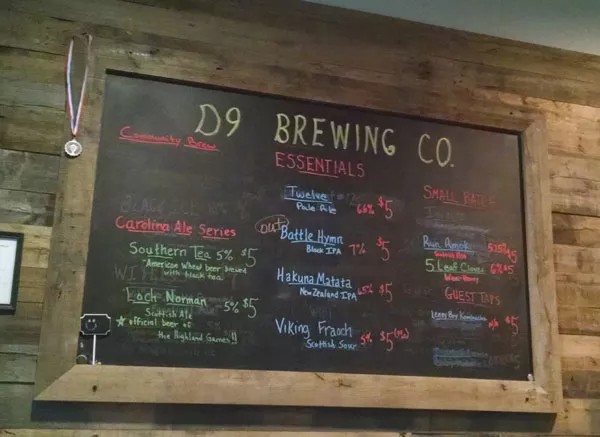 D9 BREWING CO.
Community Brew
Carolina Ale Series
Southern Tea 5% $5
"American wheat beer brewed
with black tea"
Loch Norman 5% $5
Scottish Ale
☆ official beer of
the Highland Games!!
ESSENTIALS
Twelve 6.6% $5
Pale Ale
out
Battle Hymn 7% $5
Black IPA
Hakuna Matata 6.5% $5
New Zealand IPA
Viking Fraoch 5% $5
Scottish Sour
SMALL BATCH
$5
5 Leaf Clover 6% $5
GUEST TAPS
n/a $5